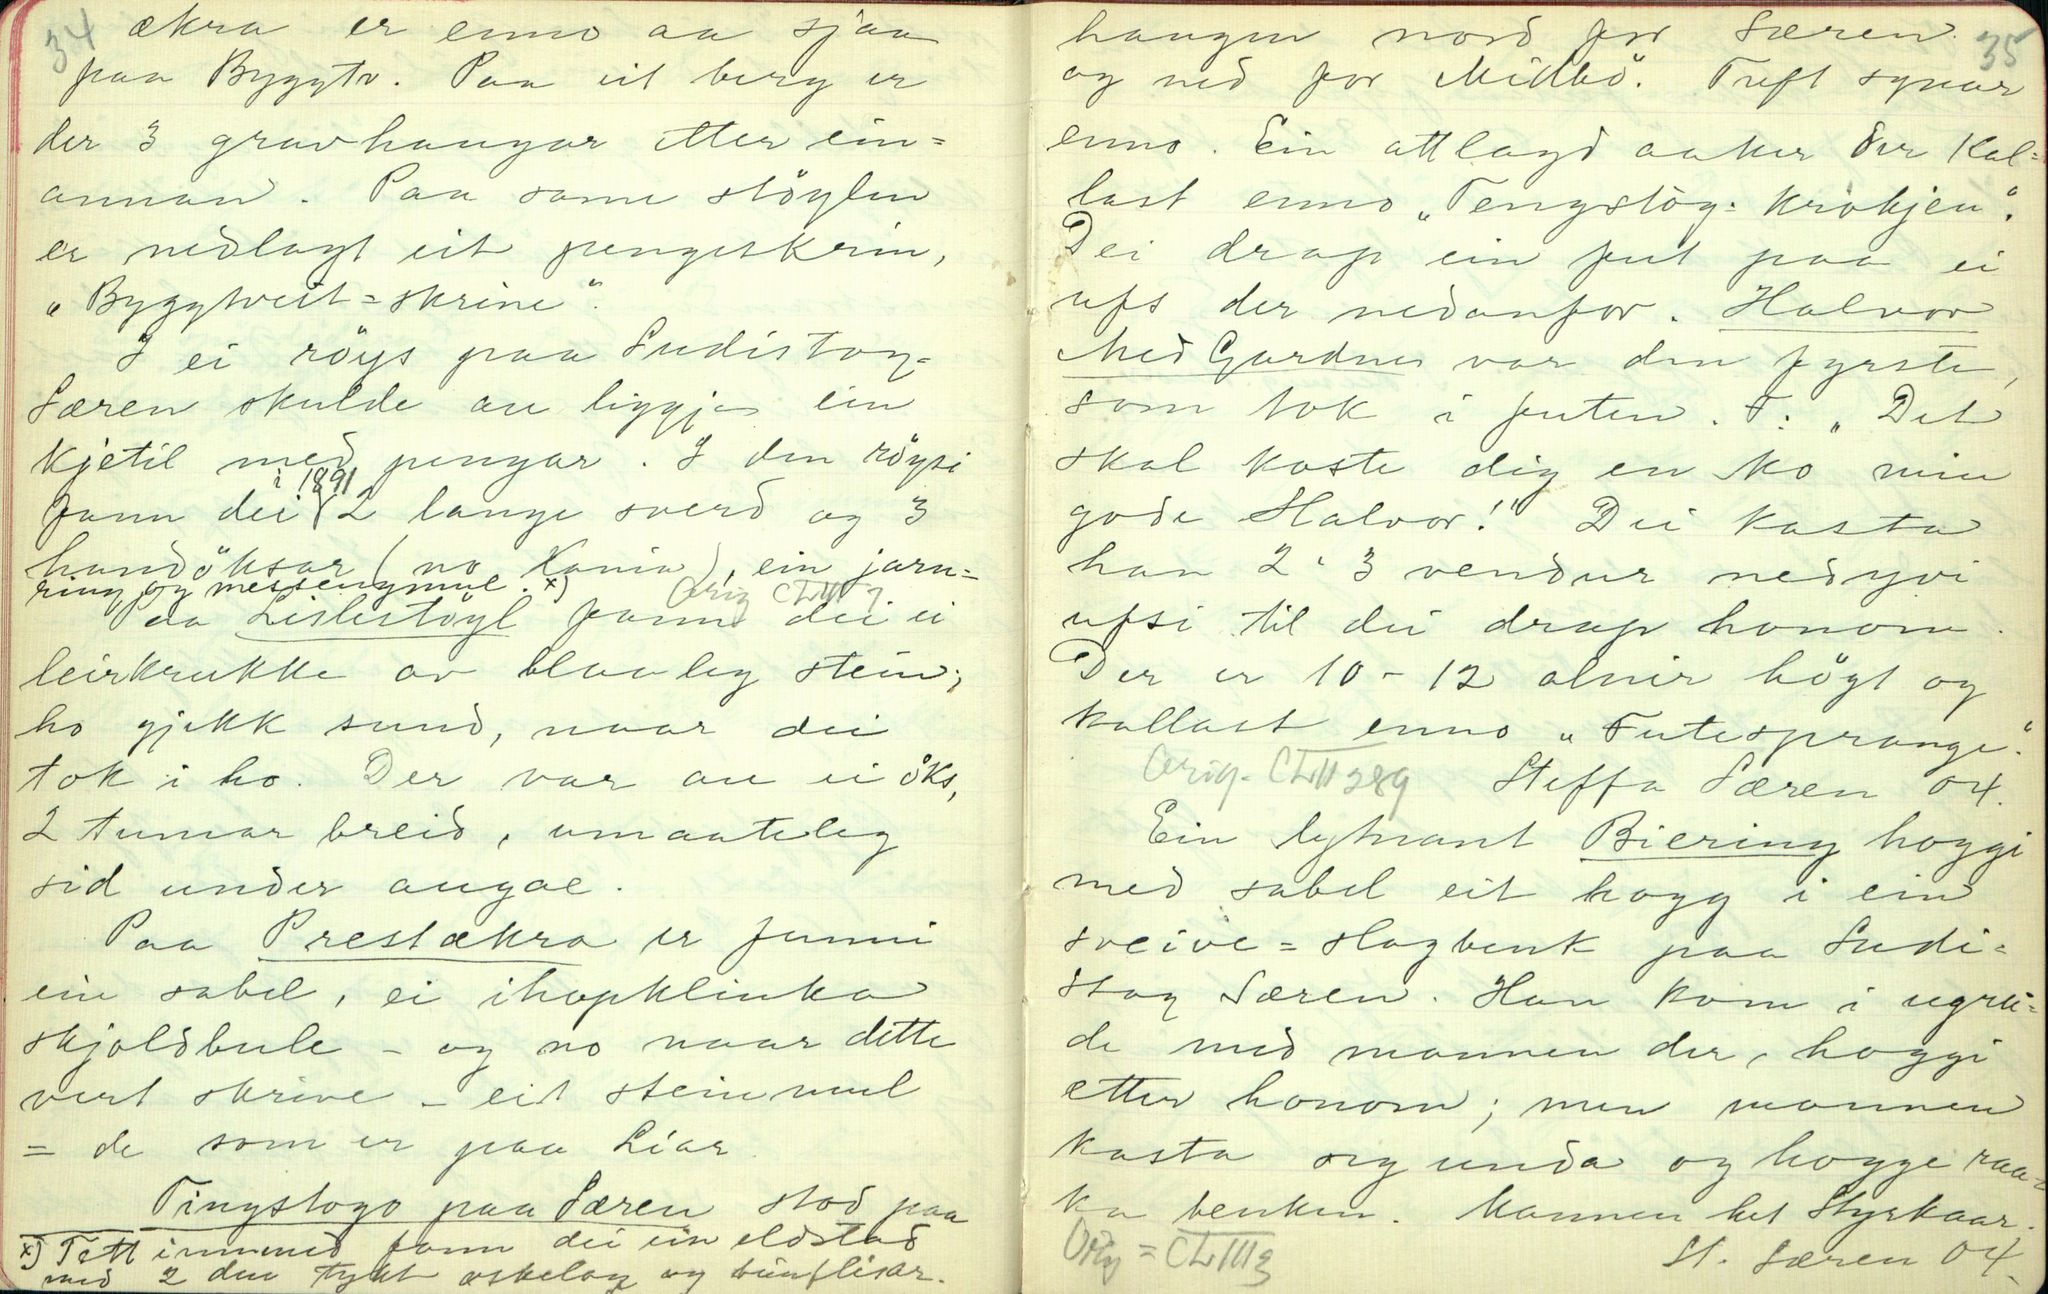 34
ækra er enno aa sjaa
paa Byggtv. Paa eit berg er
der 3 gravhaugar etter ein=
annan. Paa same stöylen
er nedlagt eit pengeskrin,
„Byggtveit=skrine".
I ei röys paa Sudistog-
Særen skulde au liggja ein
kjetil med pengar. I den röysi
fann dei i 1891 2 lange sverd og 3
handöksar (no Xania), ein jarn=
ring og messengmul. x)
Orig CLIII 7
Paa Lislestöyl fann dei ei
leirkrukke av blaaleg stein;
ho gjekk sund, naar dei
tok i ho. Der var au ei öks,
2 tumar breid, umaateleg
sid under augae.
Paa Prestækra er funni
ein sabel, ei ihopklinka
skjoldbule - og no naar dette
vert skrive - eit steinmul
= de som er paa Liar.
Tingstogo paa Særen stod paa
x) Tett innmed fann dei ein eldstad
med 2 du tykt askelag og beinflisar.
35
haugen nord for Særen
og ned for Midbö. Tuft synar
enno. Ein attlagd aaker der kal=
last enno „Tengstög-krökjen".
Dei drap ein fut paa ei
ufs der nedanfor. Halvor
Med Gardne var den fyrste,
som tok i futen. F: „Det
skal koste dig en ko min
gode Halvor!" Dei kasta
han 2 - 3 vendur nedyvi
ufsi til dei drap honom.
Der er 10-12 alnir högt og
kallast enno „Futesprange".
Orig. CLII 289 Steffa Særen 04.
Ein lytnant Biering hoggi
med sabel eit hogg i ein
sveive=slagbenk paa Sudi=
stog Særen. Han kom i ugrei=
de med mannen der, hoggi
etter honom; men mannen
kasta seg unda og hogge raa=
ka benken. Mannen het Styrkaar.
Orig = CLIII 3 St. Særen 04.